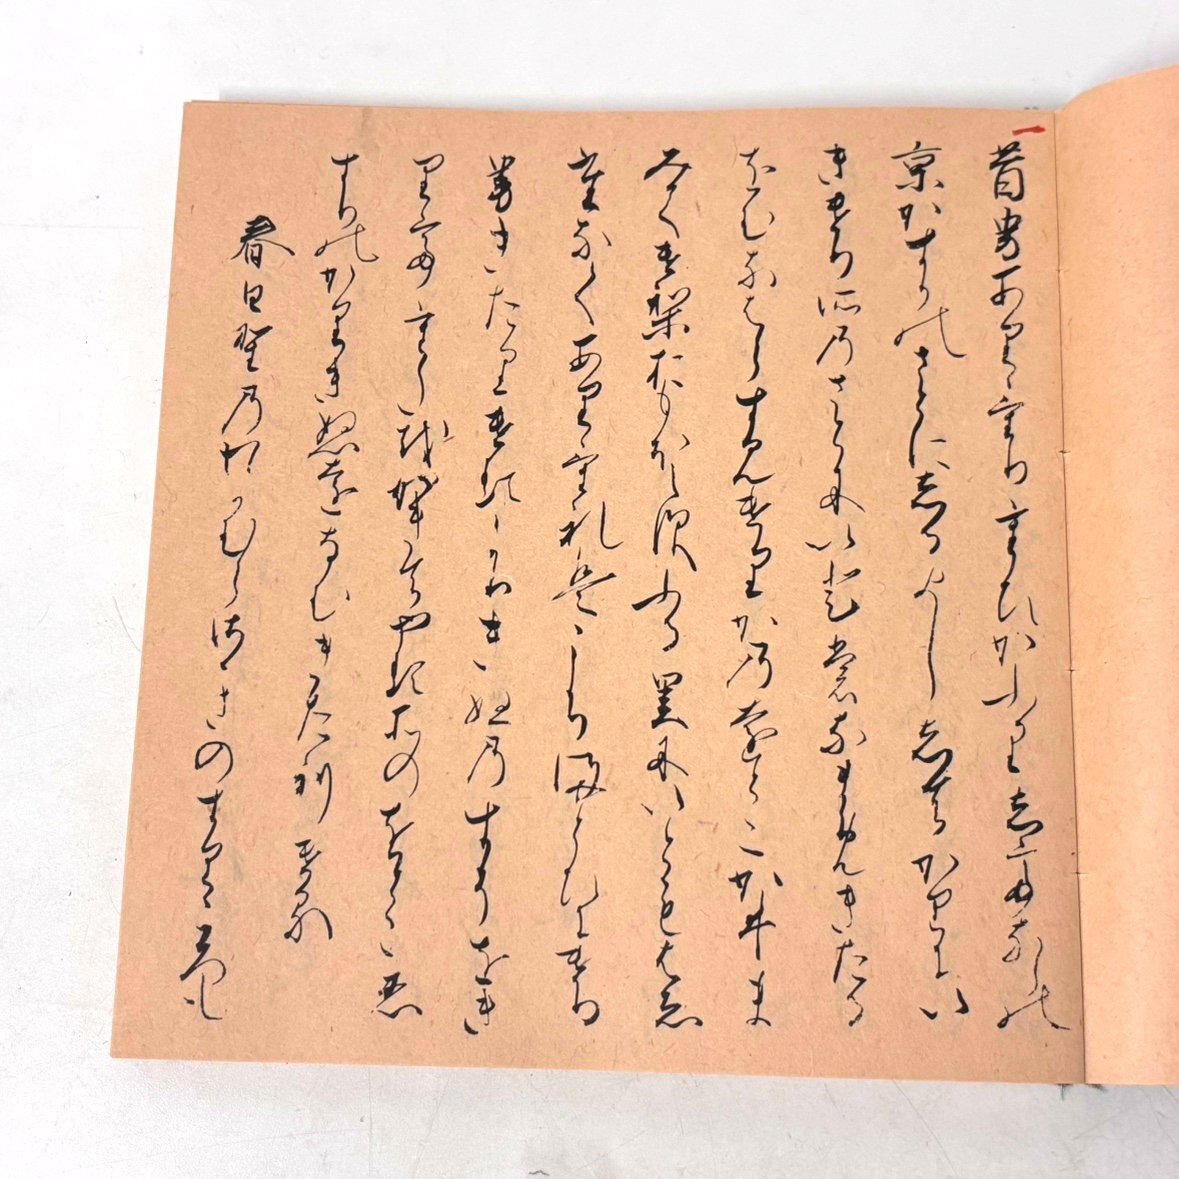 昔男ありけりうひかふりしてならの
京かすかのさとにしるよししてかりにい
きけり所のさとにいともなまめきたる
をむなはらすみけりかのおとこかいま
みてけりおもほえすふる里にいともはし
たなくありけれはここちまとひにけり
男きたりけるかりきぬのすそをき
りてうたをかきてやるそのをとこ忍
すりのかりきぬをなむきたりける
春日野のわかむらさきのすりころも